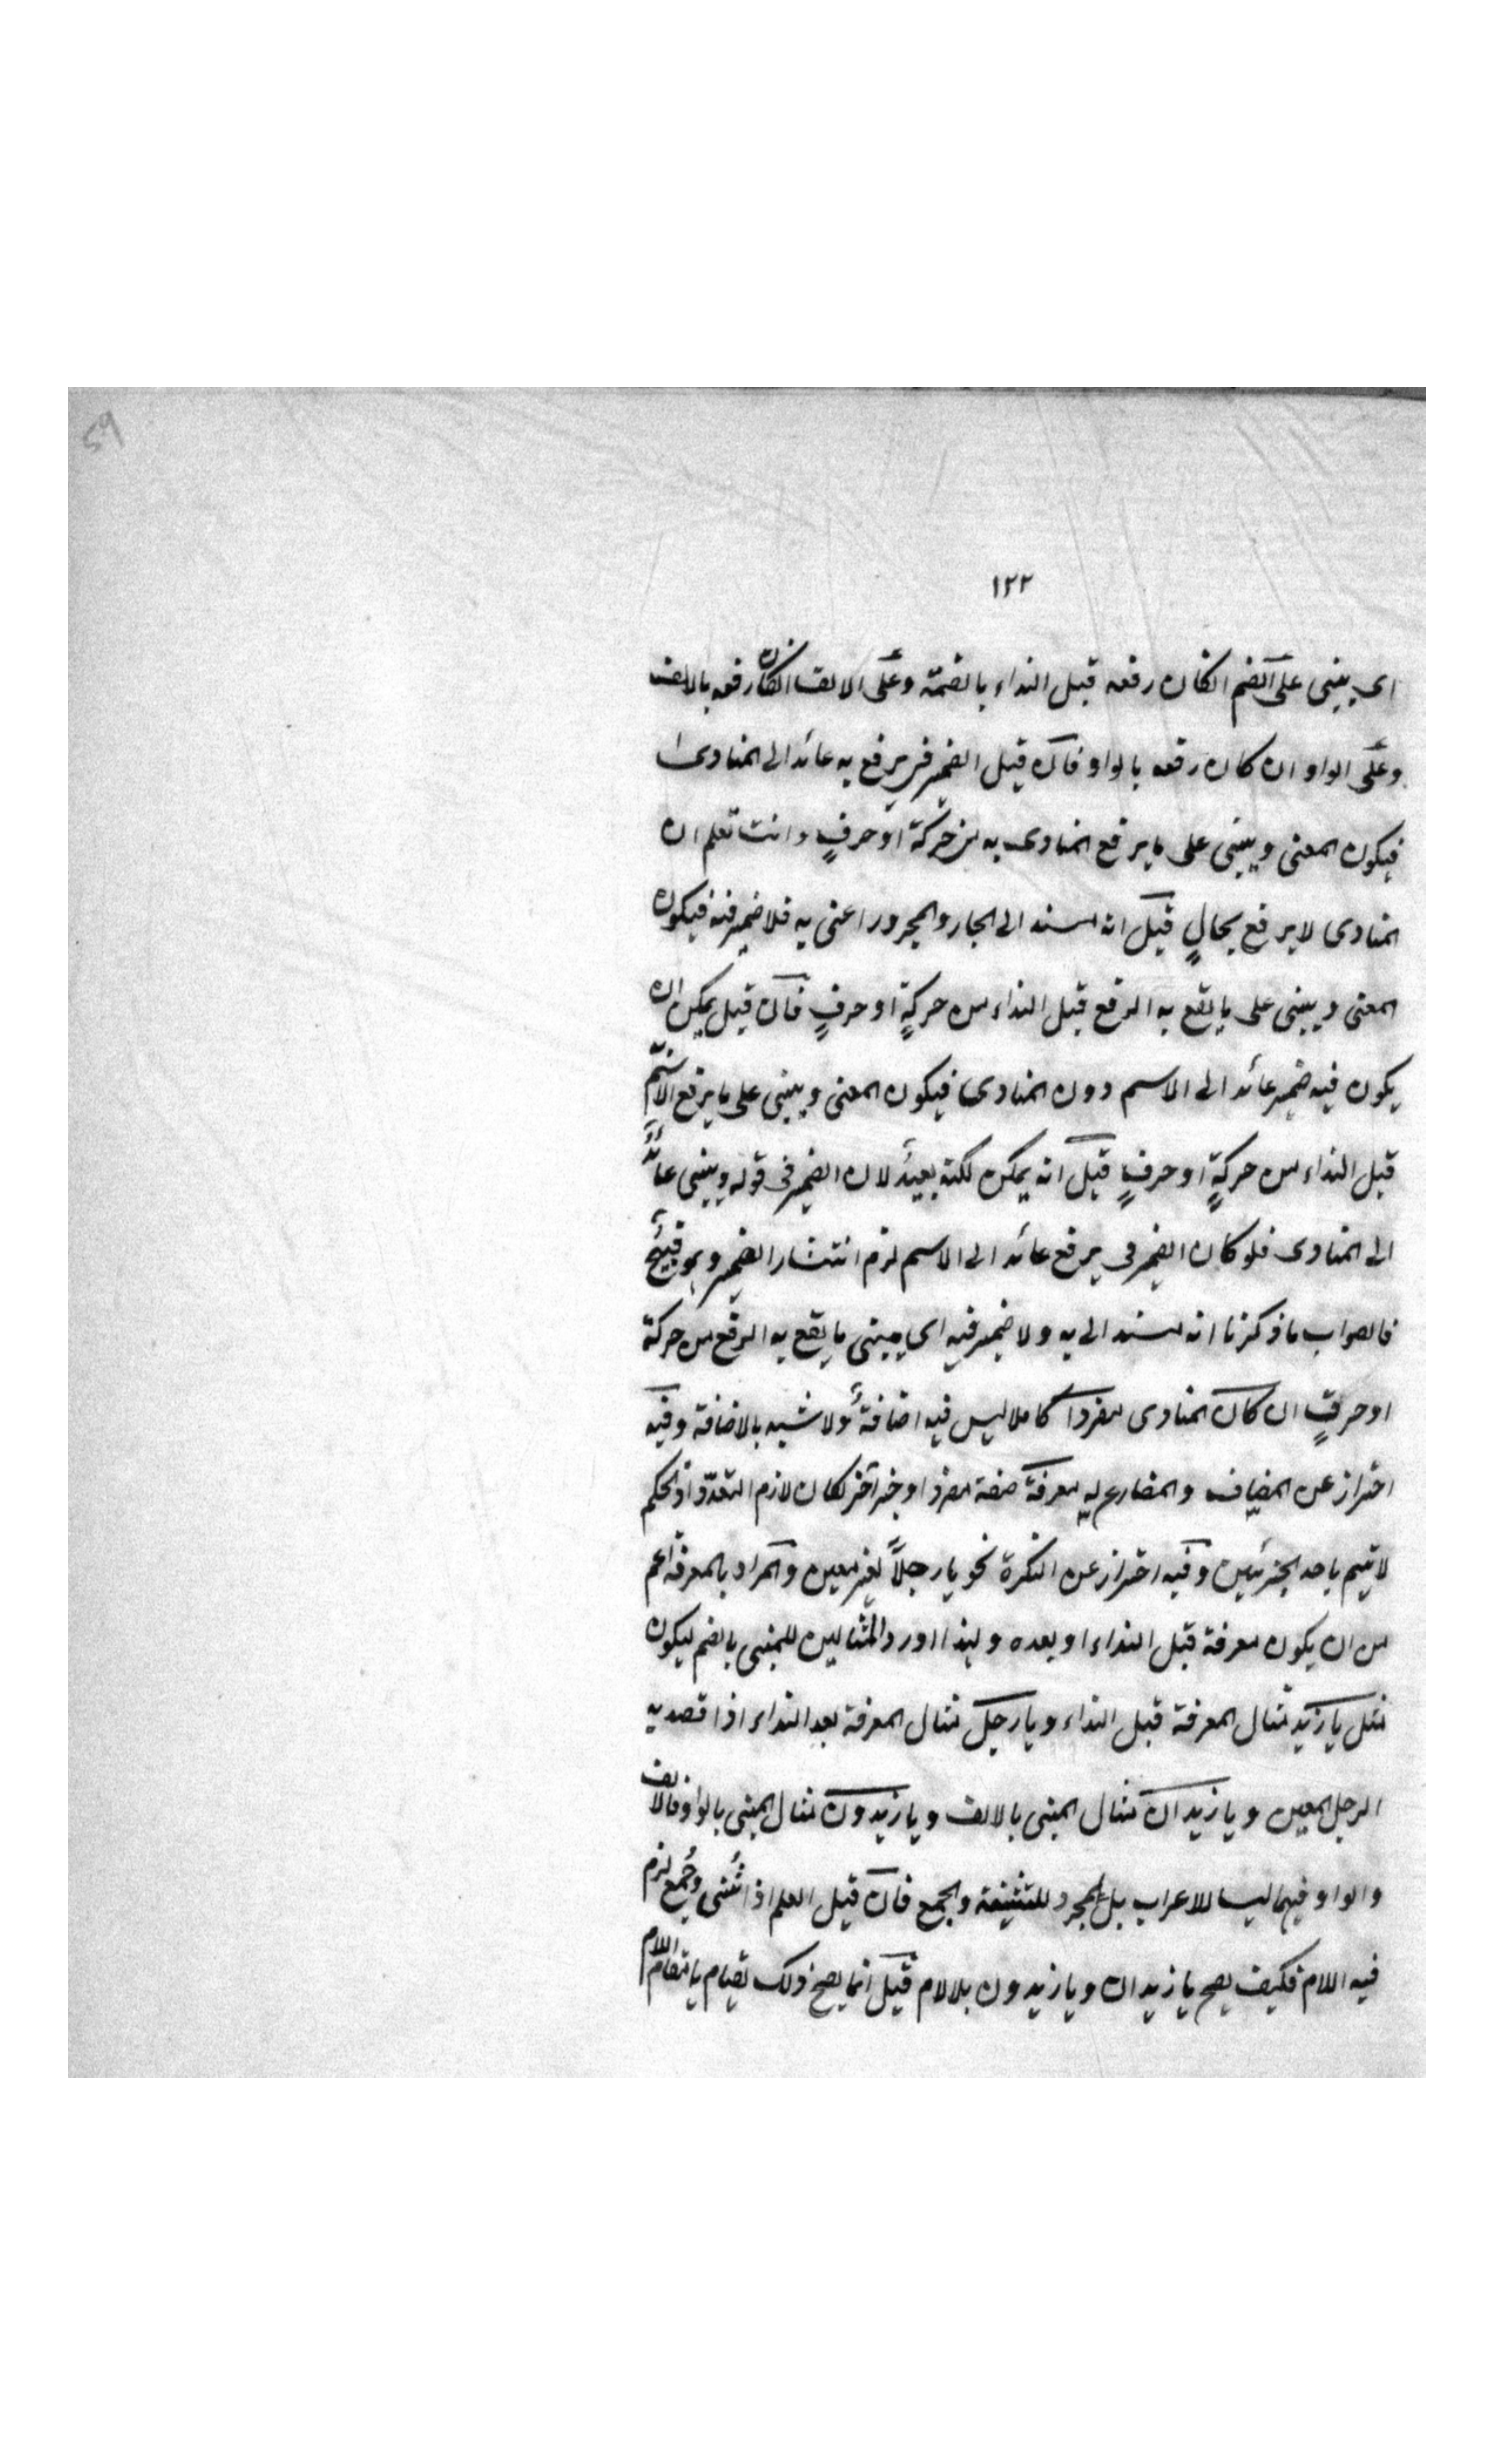 59
١٢٢
اى يبنى على الضم انكان رفعه قبل النداء بالضمة وعلى الالف انكان رفعه بالالف
وعلى الواو ان كان رفعه بالواو فان قيل الضمير فى يرفع به عائد الى المنادى
فيكون المعنى ويبنى على ما يرفع المنادى به من حركة او حرفٍ وانت تعلم ان
المنادى لا يرفع بحالٍ قيل انه مسند الى الجار والمجرور اعنى به فلا ضمير فيه فيكون
المعنى ويبنى على ما يقع به الرفع قبل النداء من حركةٍ او حرفٍ فان قيل يمكن ان
يكون فيه ضمير عائد الى الاسم دون المنادى فيكون المعنى ويبنى على ما يرفع الاسم
قبل النداء من حركةٍ او حرفٍ قيل انه يمكن لكنه بعيد لان الضمير فى قوله ويبنى عائد
الى المنادى فلو كان الضمير فى يرفع عائد الى الاسم لزم انتشار الضمير وهو قبيح
فالصواب ما ذكرنا انه مسند الى به ولا ضمير فيه اى يبنى ما يقع به الرفع من حركة
او حرفٍ ان كان المنادى مفردا كاملا ليس فيه اضافة ولا شبه بالاضافة وفيه
احتراز عن المضاف والمضارع له معرفة صفة مفردا او خبر آخر لكان لازم التعدد اذ الحكم
لا يتم باحد الجزئين وفيه احتراز عن النكرة نحو يا رجلاً لغير معين والمراد بالمعرفة اعم
من ان يكون معرفة قبل النداء او بعده ولهذا اورد المثالين للمبنى بالضم ليكون
مثل يا زيد مثال المعرفة قبل النداء ويا رجل مثال المعرفة بعد النداء اذا قصد به
الرجل المعين ويا زيدان مثال المبنى بالالف ويا زيدون مثال المبنى بالواو فالالف
والواو فيهما ليسا للاعراب بل لمجرد للتثنية والجمع فان قيل العلم اذا ثنى وجمع لزم
فيه اللام فكيف يصح يا زيدان ويا زيدون بلا لام قيل انما يصح ذلك لقيام يا مقام اللام